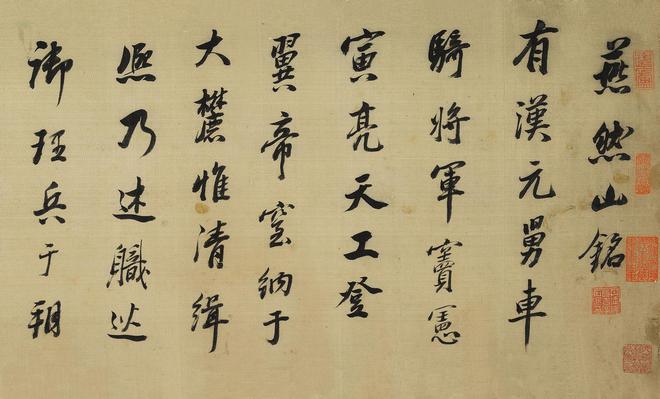 燕然山銘
有漢元舅車
騎將軍竇憲
寅亮天工登
翼帝室納于
大麓惟清緝
熙乃述職巡
御理兵于朔